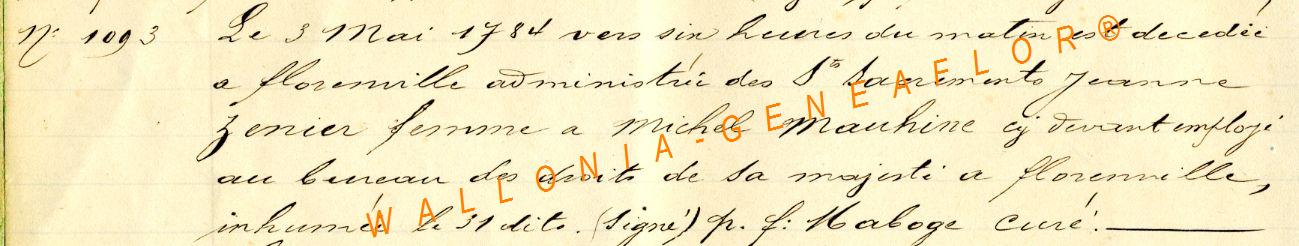 N: 1093 Le 3 Mai 1784 vers six heures du matin est decedée
a florenville administrée des Sts Sacrements Jeanne
Zenier femme a Michel Mauhine cy devant employé
au bureau des droits de sa majesté a florenville,
inhumée le 31 dito. (signé) p. f: Maboge curé.
WALLONIA-GENEAFLOR®